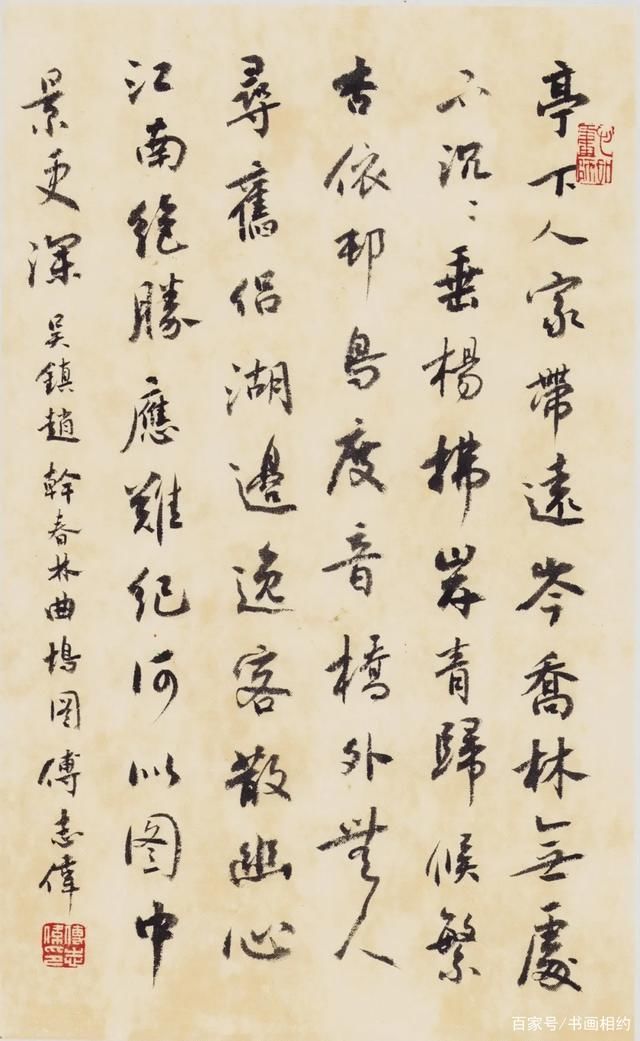 亭下人家帶遠岑喬林無處
不沉〻垂楊拂岸青歸候繁
杏依邨鳥度音橋外無人
尋舊侶湖邊逸客散幽心
江南絶勝應難紀何以图中
景更深
吳鎮趙幹春林曲塢図傅志偉
百家号/书画相约